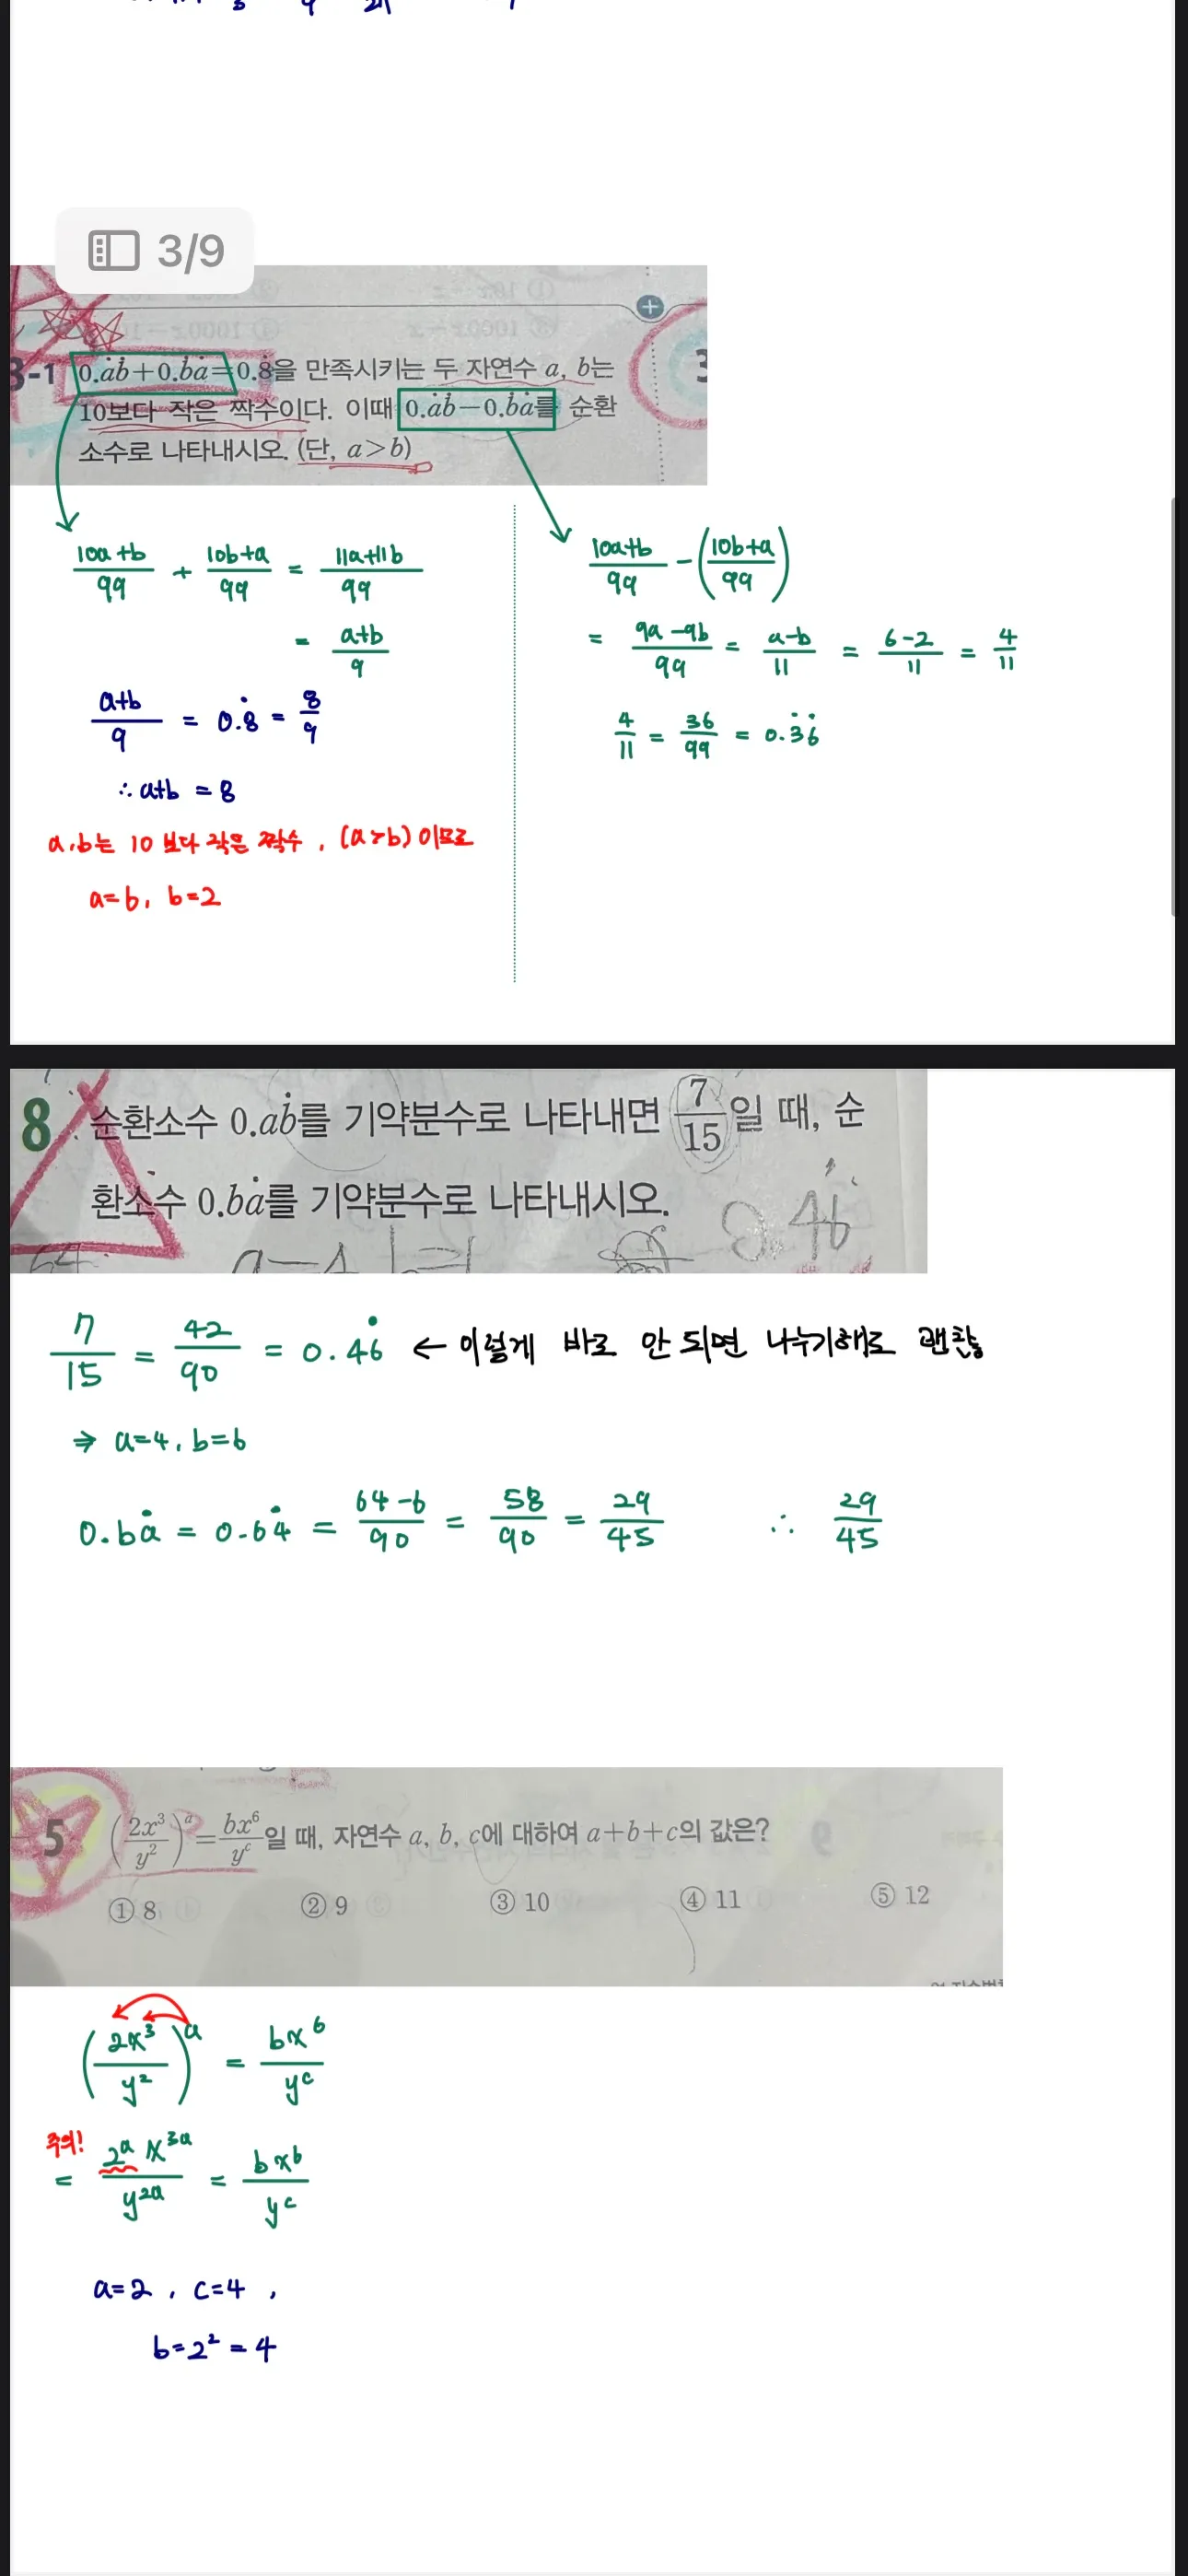 3/9
3-1 0.ȧḃ+0.ḃȧ=0.8̇을 만족시키는 두 자연수 a, b는
10보다 작은 짝수이다. 이때 0.ȧḃ-0.ḃȧ를 순환
소수로 나타내시오. (단, a>b)
(10a+b)/99 + (10b+a)/99 = (11a+11b)/99
= (a+b)/9
(a+b)/9 = 0.8̇ = 8/9
∴ a+b = 8
a, b는 10 보다 작은 짝수, (a>b) 이므로
a=6, b=2
(10a+b)/99 - ((10b+a)/99)
= (9a-9b)/99 = (a-b)/11 = (6-2)/11 = 4/11
4/11 = 36/99 = 0.3̇6̇
8 순환소수 0.aḃ를 기약분수로 나타내면 7/15일 때, 순
환소수 0.bȧ를 기약분수로 나타내시오.
0.46̇
7/15 = 42/90 = 0.46̇ ← 이렇게 바로 안 되면 나누기해도 괜찮
⇒ a=4, b=6
0.bȧ = 0.64̇ = (64-6)/90 = 58/90 = 29/45 ∴ 29/45
5 (2x³/y²)ᵃ = bx⁶/yᶜ일 때, 자연수 a, b, c에 대하여 a+b+c의 값은?
① 8 ② 9 ③ 10 ④ 11 ⑤ 12
(2x³/y²)ᵃ = bx⁶/yᶜ
주의!
= 2ᵃx³ᵃ/y²ᵃ = bx⁶/yᶜ
a=2, c=4,
b=2²=4